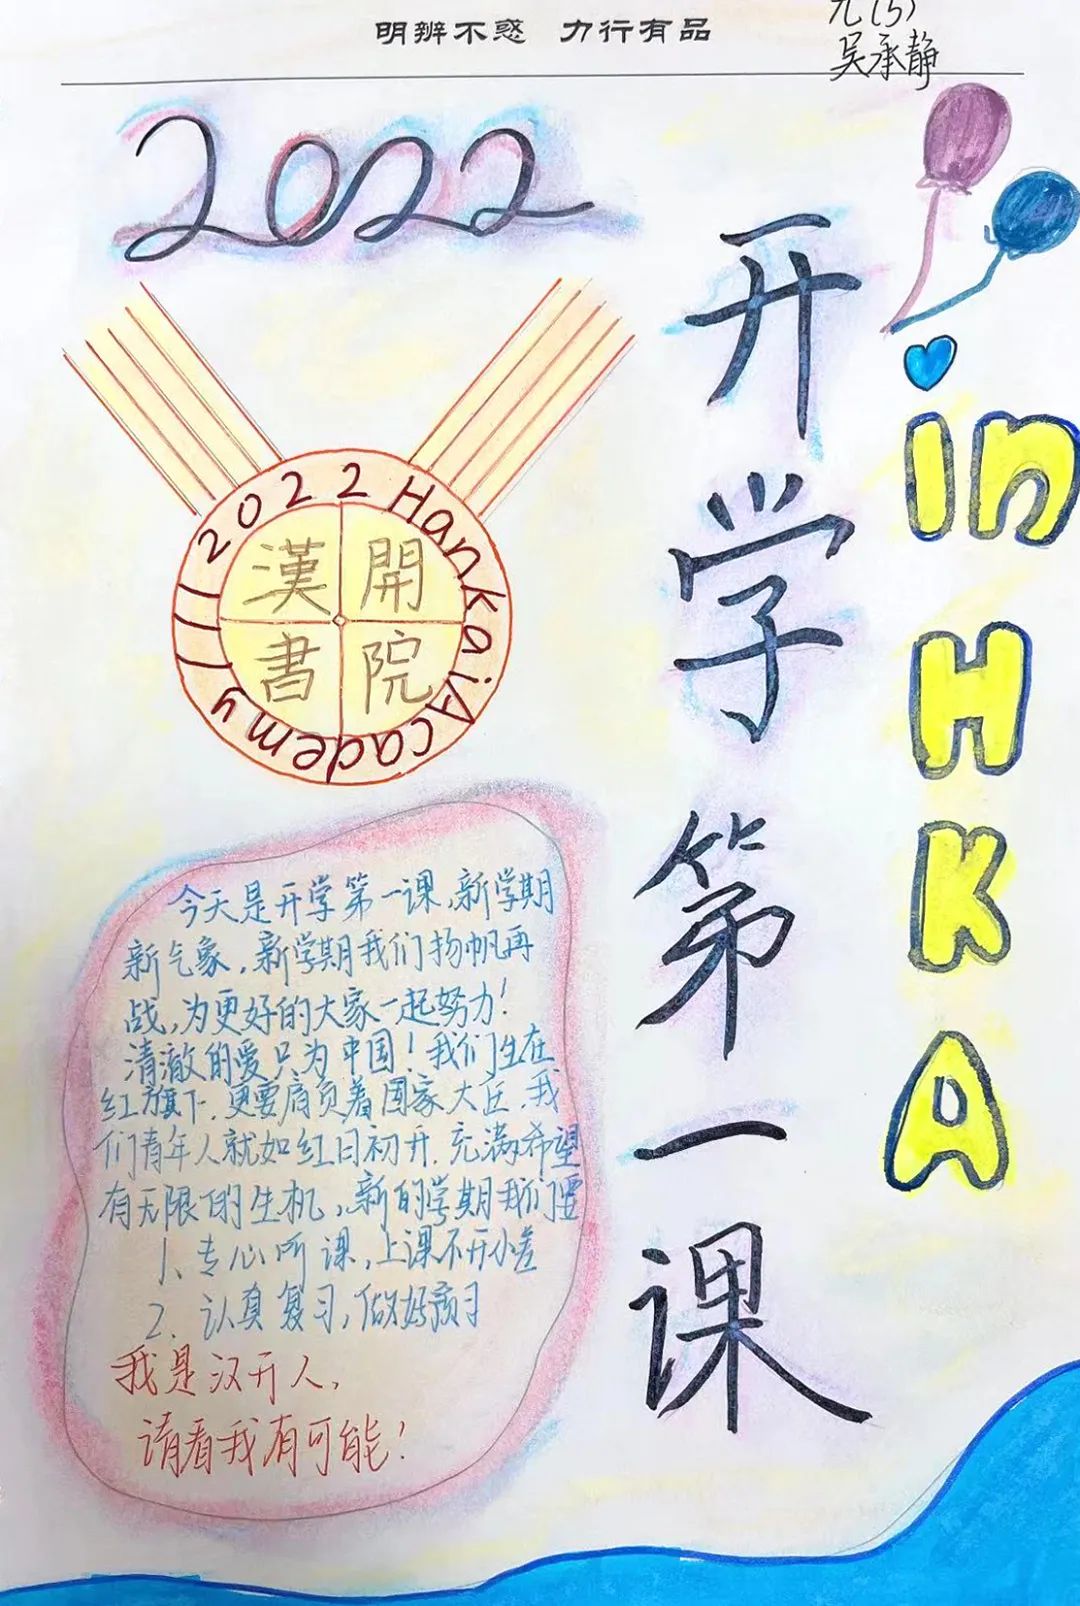 明辨不惑 力行有品
九(5)
吴承静
2022
2022 Hankai Academy
漢開
書院
开学第一课
in HKA
今天是开学第一课,新学期
新气象,新学期我们扬帆再
战,为更好的大家一起努力!
清澈的爱只为中国!我们生在
红旗下,更要肩负着国家大任,我
们青年人就如红日初升,充满希望
有无限的生机,新的学期我们要
1、专心听课,上课不开小差
2、认真复习,做好预习
我是汉开人,
请看我有可能!